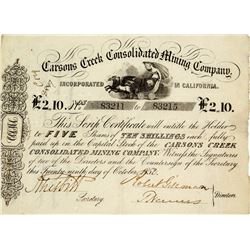 Carsons Creek Consolidated Mining Company,
INCORPORATED IN CALIFORNIA.
£2.10. Nos 83211 to 83215 £2.10.
This Scrip Certificate will entitle the Holder
to FIVE Shares of TEN SHILLINGS each fully
paid up in the Capital Stock of the CARSONS CREEK
CONSOLIDATED MINING COMPANY. Witness the Signatures
of two of the Directors and the Countersign of the Secretary
This Twenty ninth day of October 1852.
Secretary
Directors